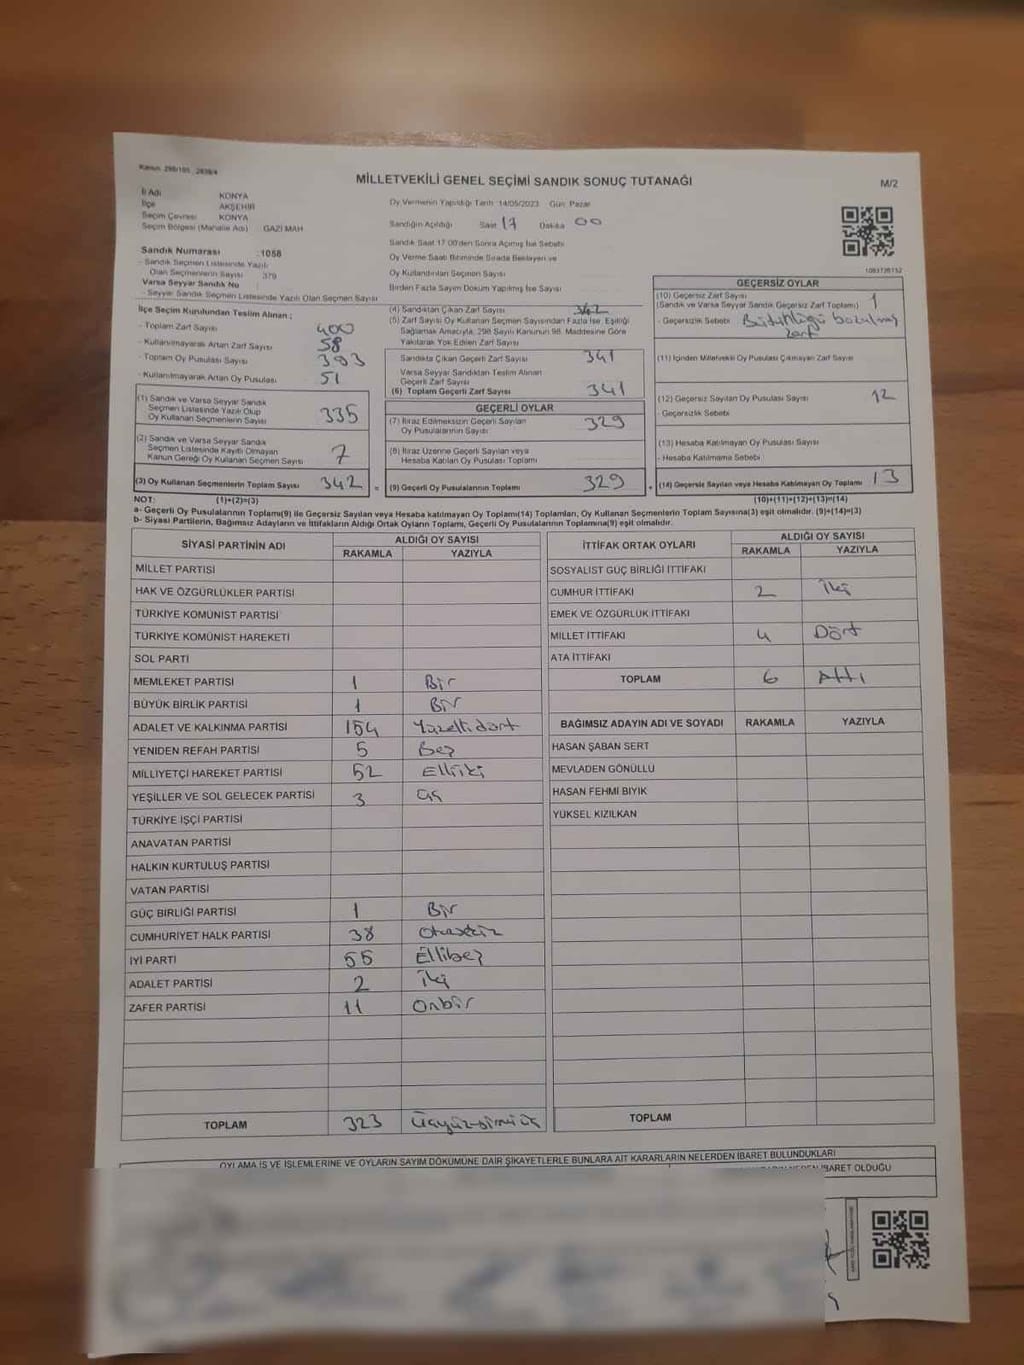 Kanun: 298/105 , 2839/4
MİLLETVEKİLİ GENEL SEÇİMİ SANDIK SONUÇ TUTANAĞI
M/2
İl Adı KONYA
İlçe AKŞEHİR
Seçim Çevresi KONYA
Seçim Bölgesi (Mahalle Adı) GAZİ MAH
Sandık Numarası :1058
- Sandık Seçmen Listesinde Yazılı
Olan Seçmenlerin Sayısı :379
Varsa Seyyar Sandık No :
- Seyyar Sandık Seçmen Listesinde Yazılı Olan Seçmen Sayısı
İlçe Seçim Kurulundan Teslim Alınan ;
- Toplam Zarf Sayısı 400
- Kullanılmayarak Artan Zarf Sayısı 58
- Toplam Oy Pusulası Sayısı 393
- Kullanılmayarak Artan Oy Pusulası 51
(1) Sandık ve Varsa Seyyar Sandık
Seçmen Listesinde Yazılı Olup
Oy Kullanan Seçmenlerin Sayısı 335
(2) Sandık ve Varsa Seyyar Sandık
Seçmen Listesinde Kayıtlı Olmayan
Kanun Gereği Oy Kullanan Seçmen Sayısı 7
(3) Oy Kullanan Seçmenlerin Toplam Sayısı 342
Oy Vermenin Yapıldığı Tarih: 14/05/2023 Gün: Pazar
Sandığın Açıldığı Saat 17 Dakika 00
Sandık Saat 17:00'den Sonra Açılmış İse Sebebi
Oy Verme Saati Bitiminde Sırada Bekleyen ve
Oy Kullandırılan Seçmen Sayısı
Birden Fazla Sayım Döküm Yapılmış İse Sayısı
(4) Sandıktan Çıkan Zarf Sayısı 342
(5) Zarf Sayısı Oy Kullanan Seçmen Sayısından Fazla İse, Eşitliği
Sağlamak Amacıyla, 298 Sayılı Kanunun 98. Maddesine Göre
Yakılarak Yok Edilen Zarf Sayısı
Sandıkta Çıkan Geçerli Zarf Sayısı 341
Varsa Seyyar Sandıktan Teslim Alınan
Geçerli Zarf Sayısı
(6) Toplam Geçerli Zarf Sayısı 341
GEÇERLİ OYLAR
(7) İtiraz Edilmeksizin Geçerli Sayılan
Oy Pusulalarının Sayısı 329
(8) İtiraz Üzerine Geçerli Sayılan veya
Hesaba Katılan Oy Pusulası Toplamı
= (9) Geçerli Oy Pusulalarının Toplamı 329
1083726152
GEÇERSİZ OYLAR
(10) Geçersiz Zarf Sayısı 1
(Sandık ve Varsa Seyyar Sandık Geçersiz Zarf Toplamı)
- Geçersizlik Sebebi Bütünlüğü bozulmuş
zarf
(11) İçinden Milletvekili Oy Pusulası Çıkmayan Zarf Sayısı
(12) Geçersiz Sayılan Oy Pusulası Sayısı 12
- Geçersizlik Sebebi
(13) Hesaba Katılmayan Oy Pusulası Sayısı
- Hesaba Katılmama Sebebi
+ (14) Geçersiz Sayılan veya Hesaba Katılmayan Oy Toplamı 13
NOT: (1)+(2)=(3) (10)+(11)+(12)+(13)=(14)
a- Geçerli Oy Pusulalarının Toplamı(9) ile Geçersiz Sayılan veya Hesaba katılmayan Oy Toplamı(14) Toplamları, Oy Kullanan Seçmenlerin Toplam Sayısına(3) eşit olmalıdır. (9)+(14)=(3)
b- Siyasi Partilerin, Bağımsız Adayların ve İttifakların Aldığı Ortak Oyların Toplamı, Geçerli Oy Pusulalarının Toplamına(9) eşit olmalıdır.
SİYASİ PARTİNİN ADI ALDIĞI OY SAYISI
RAKAMLA YAZIYLA
MİLLET PARTİSİ
HAK VE ÖZGÜRLÜKLER PARTİSİ
TÜRKİYE KOMÜNİST PARTİSİ
TÜRKİYE KOMÜNİST HAREKETİ
SOL PARTİ
MEMLEKET PARTİSİ 1 Bir
BÜYÜK BİRLİK PARTİSİ 1 Bir
ADALET VE KALKINMA PARTİSİ 154 Yüzellidört
YENİDEN REFAH PARTİSİ 5 Beş
MİLLİYETÇİ HAREKET PARTİSİ 52 Elliiki
YEŞİLLER VE SOL GELECEK PARTİSİ 3 üç
TÜRKİYE İŞÇİ PARTİSİ
ANAVATAN PARTİSİ
HALKIN KURTULUŞ PARTİSİ
VATAN PARTİSİ
GÜÇ BİRLİĞİ PARTİSİ 1 Bir
CUMHURİYET HALK PARTİSİ 38 Otuzsekiz
İYİ PARTİ 55 Ellibeş
ADALET PARTİSİ 2 İki
ZAFER PARTİSİ 11 Onbir
TOPLAM 323 Üçyüzyirmiüç
İTTİFAK ORTAK OYLARI ALDIĞI OY SAYISI
RAKAMLA YAZIYLA
SOSYALİST GÜÇ BİRLİĞİ İTTİFAKI
CUMHUR İTTİFAKI 2 İki
EMEK VE ÖZGÜRLÜK İTTİFAKI
MİLLET İTTİFAKI 4 Dört
ATA İTTİFAKI
TOPLAM 6 Altı
BAĞIMSIZ ADAYIN ADI VE SOYADI RAKAMLA YAZIYLA
HASAN ŞABAN SERT
MEVLADEN GÖNÜLLÜ
HASAN FEHMİ BIYIK
YÜKSEL KIZILKAN
TOPLAM
OYLAMA İŞ VE İŞLEMLERİNE VE OYLARIN SAYIM DÖKÜMÜNE DAİR ŞİKAYETLERLE BUNLARA AİT KARARLARIN NELERDEN İBARET BULUNDUKLARI
İBARET OLDUĞU